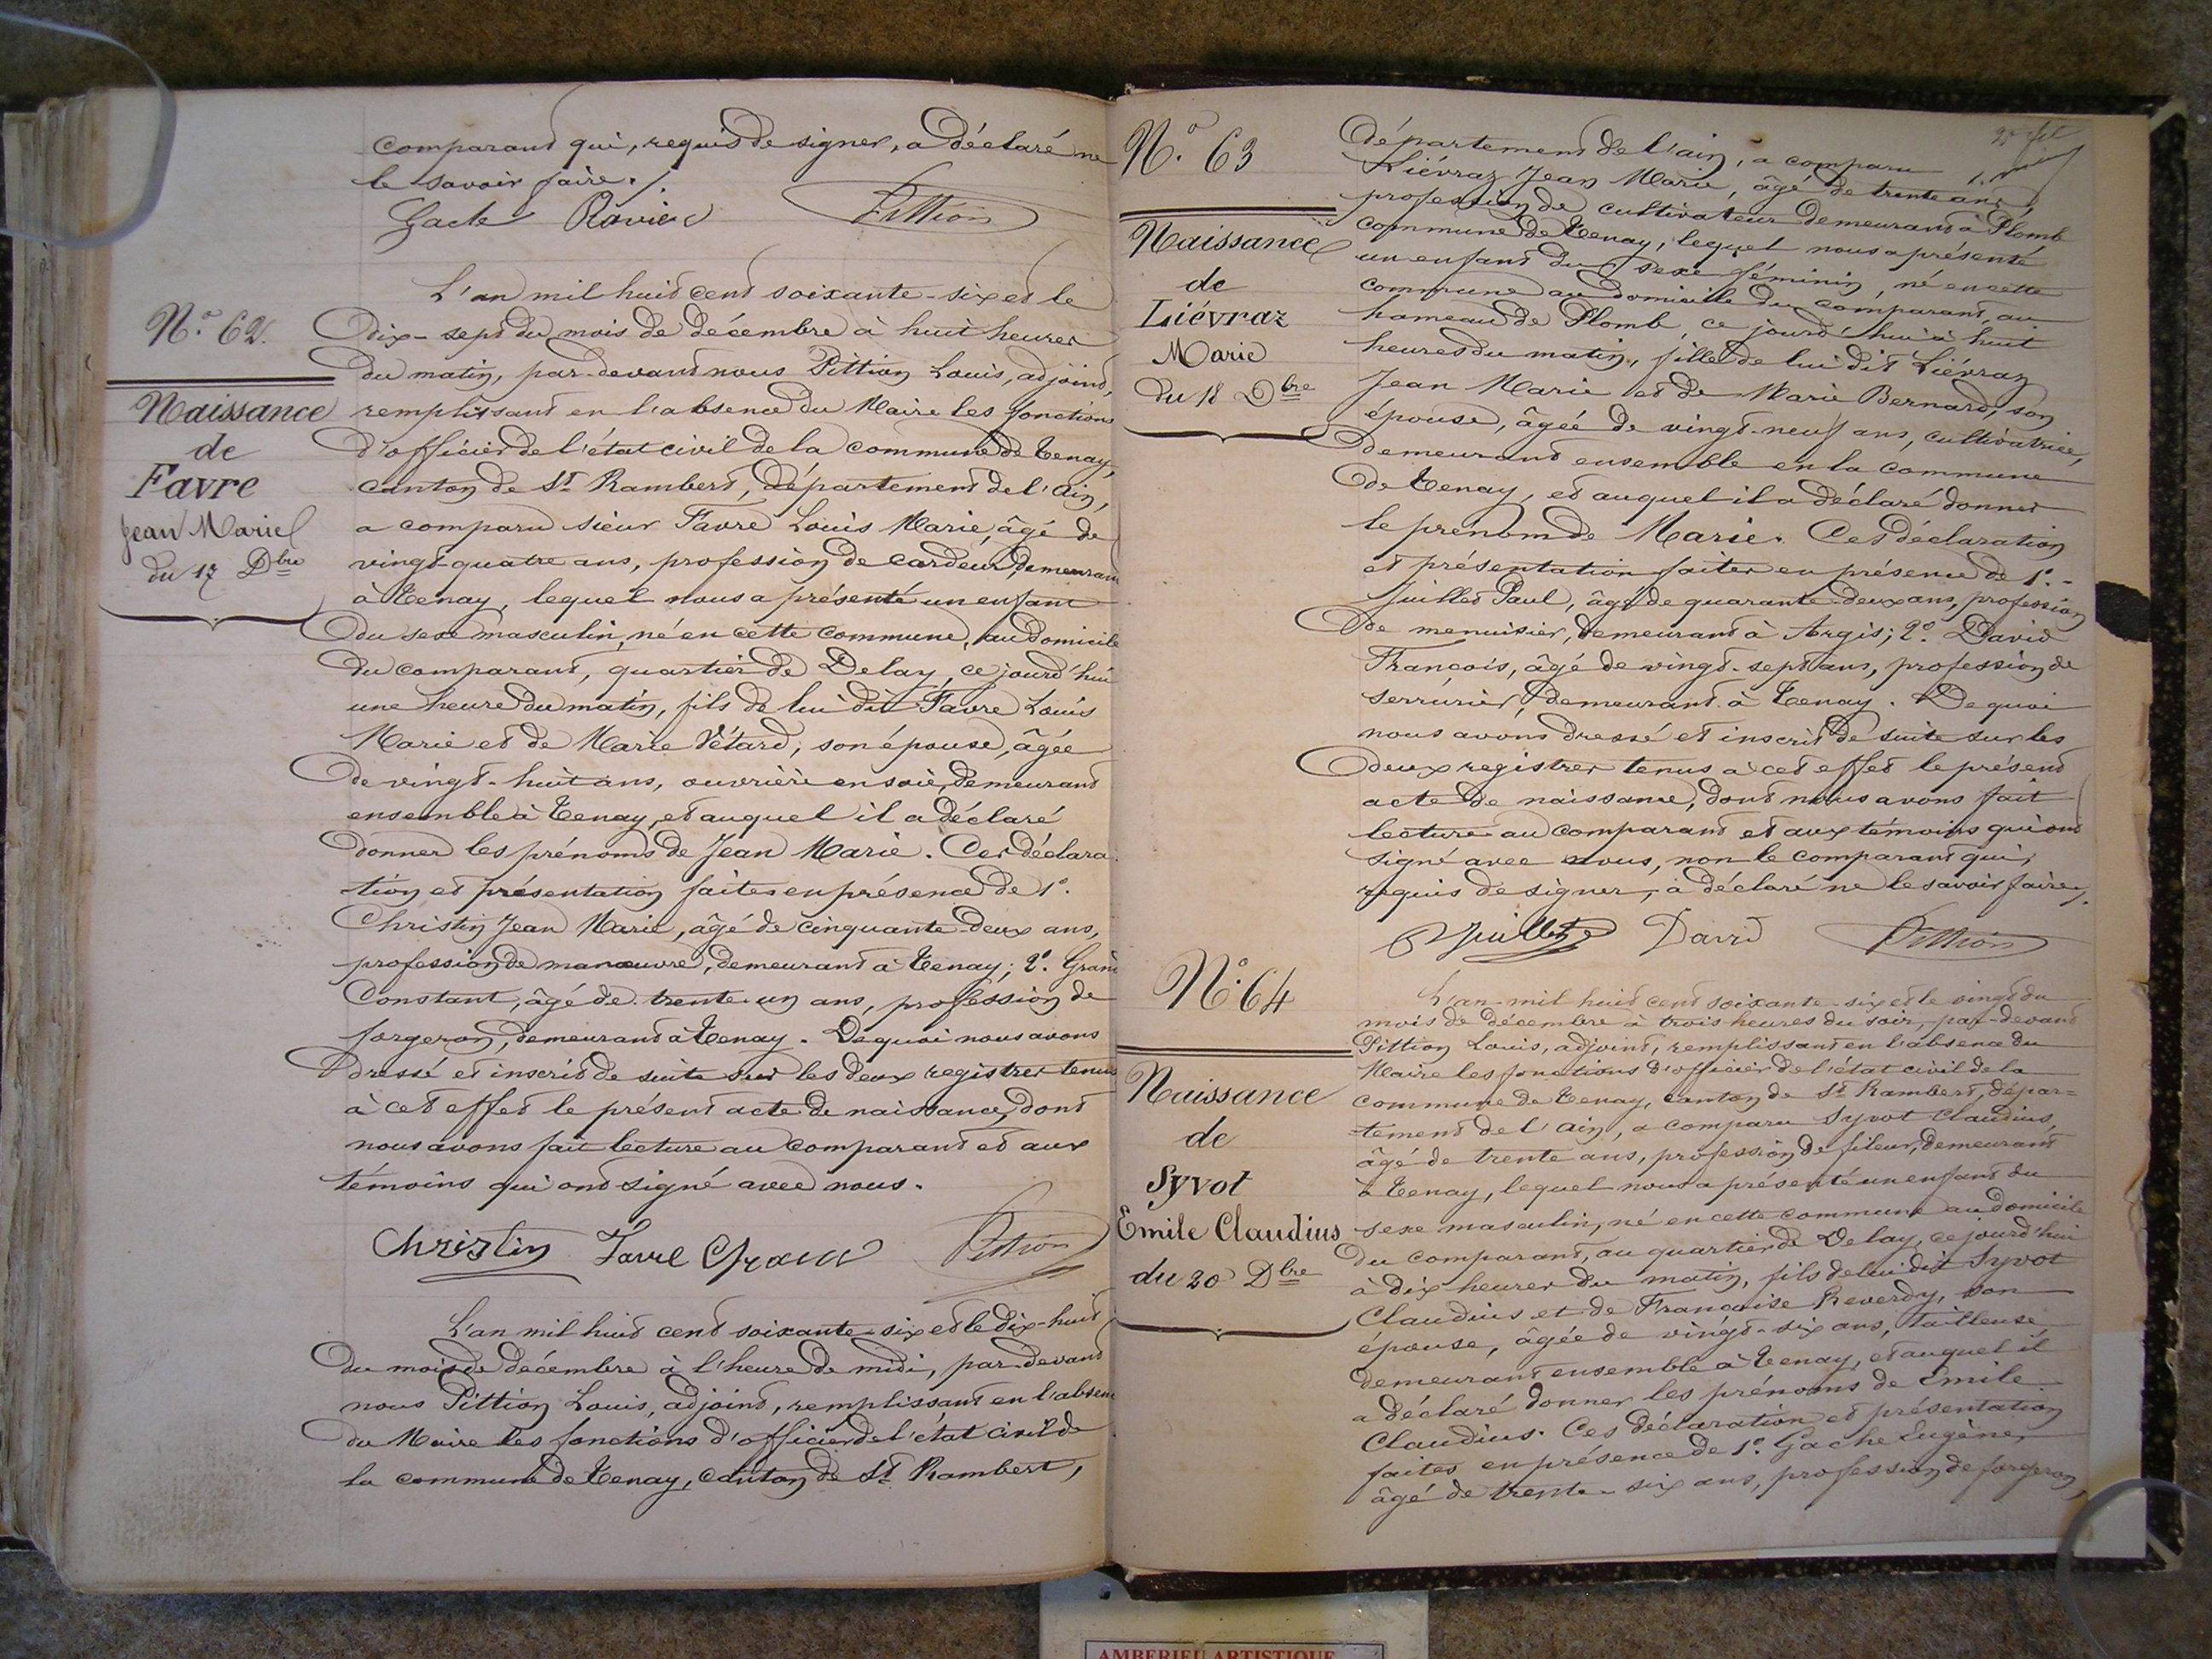 comparant qui, requis de signer, a déclaré ne
le savoir faire./.
Gache Ravier Pittion
N.° 62.
Naissance
de
Favre
Jean Marie
du 17 Dbre
L'an mil huit cent soixante-six et le
dix-sept du mois de décembre à huit heures
du matin, par-devant nous Pittion Louis, adjoint,
remplissant en l'absence du Maire les fonctions
d'officier de l'état civil de la commune de Tenay,
canton de St Rambert, Département de l'Ain,
a comparu sieur Favre Louis Marie, âgé de
vingt-quatre ans, profession de cardeur, demeurant
à Tenay, lequel nous a présenté un enfant
du sexe masculin, né en cette commune, au domicile
du comparant, quartier de Delay, ce jourd'hui
une heure du matin, fils de lui dit Favre Louis
Marie et de Marie Vétard, son épouse, âgée
de vingt-huit ans, ouvrière en soie, demeurant
ensemble à Tenay, et auquel il a déclaré
donner les prénoms de Jean Marie. Ces déclara
-tion et présentation faites en présence de 1°.
Christin Jean Marie, âgé de cinquante-deux ans,
profession de manœuvre, demeurant à Tenay; 2°. Grand
Constant, âgé de trente-un ans, profession de
forgeron, demeurant à Tenay. De quoi nous avons
dressé et inscrit de suite sur les deux registres tenus
à cet effet le présent acte de naissance, dont
nous avons fait lecture au comparant et aux
témoins qui ont signé avec nous.
Christin Favre Grand Pittion
L'an mil huit cent soixante-six et le dix-huit
du mois de décembre à l'heure de midi, par-devant
nous Pittion Louis, adjoint, remplissant en l'absence
du Maire les fonctions d'officier de l'état civil de
la commune de Tenay, canton de St Rambert,
N.° 63
Naissance
de
Liévraz
Marie
du 18 Dbre
Département de l'ain, a comparu
Liévraz Jean Marie, âgé de trente ans,
profession de cultivateur demeurant à Plomb
commune de Tenay, lequel nous a présenté
un enfant du sexe féminin, né en cette
commune au domicile du comparant, au
hameau de Plomb, ce jourd'hui à huit
heures du matin, fille de lui dit Liévraz
Jean Marie et de Marie Bernard, son
épouse, âgée de vingt-neuf ans, cultivatrice,
demeurant ensemble en la commune
de Tenay, et auquel il a déclaré donner
le prénom de Marie. Ces déclaration
et présentation faites en présence de 1°.-
Juillet Paul, âgé de quarante-deux ans, profession
de menuisier, demeurant à Argis; 2°. David
François, âgé de vingt-sept ans, profession de
serrurier, demeurant à Tenay. De quoi
nous avons dressé et inscrit de suite sur les
deux registres tenus à cet effet le présent
acte de naissance, dont nous avons fait
lecture au comparant et aux témoins qui ont
signé avec nous, non le comparant qui,
requis de signer, a déclaré ne le savoir faire./.
Juillet David Pittion
N.° 64
Naissance
de
Syvot
Emile Claudius
du 20 Dbre
L'an mil huit cent soixante-six et le vingt du
mois de décembre à trois heures du soir, par-devant
Pittion Louis, adjoint, remplissant en l'absence du
Maire les fonctions d'officier de l'état civil de la
commune de Tenay, canton de St Rambert, dépar=
-tement de l'Ain, a comparu Syvot Claudius,
âgé de trente ans, profession de fileur, demeurant
à Tenay, lequel nous a présenté un enfant du
sexe masculin, né en cette commune au domicile
du comparant, au quartier de Delay, ce jourd'hui
à dix heures du matin, fils de lui dit Syvot
Claudius et de Françoise Reverdy, son
épouse, âgée de vingt-six ans, tailleuse
demeurant ensemble à Tenay, et auquel il
a déclaré donner les prénoms de Emile
Claudius. Ces déclaration et présentation
faites en présence de 1°. Gache Eugène,
âgé de trente-six ans, profession de forgeron,
AMBERIEU ARTISTIQUE